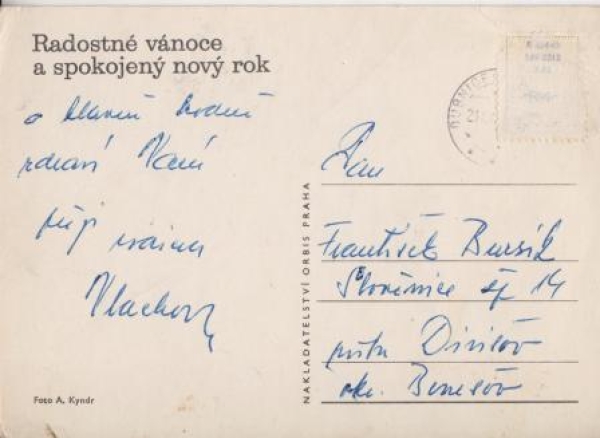 Radostné vánoce
a spokojený nový rok
a hlavně hodně
zdraví Vám
přejí
Vlachovi
Foto A. Kyndr
NAKLADATELSTVÍ ORBIS PRAHA
Pan
František Bursík
čp 14
pošta Divišov
okr. Benešov